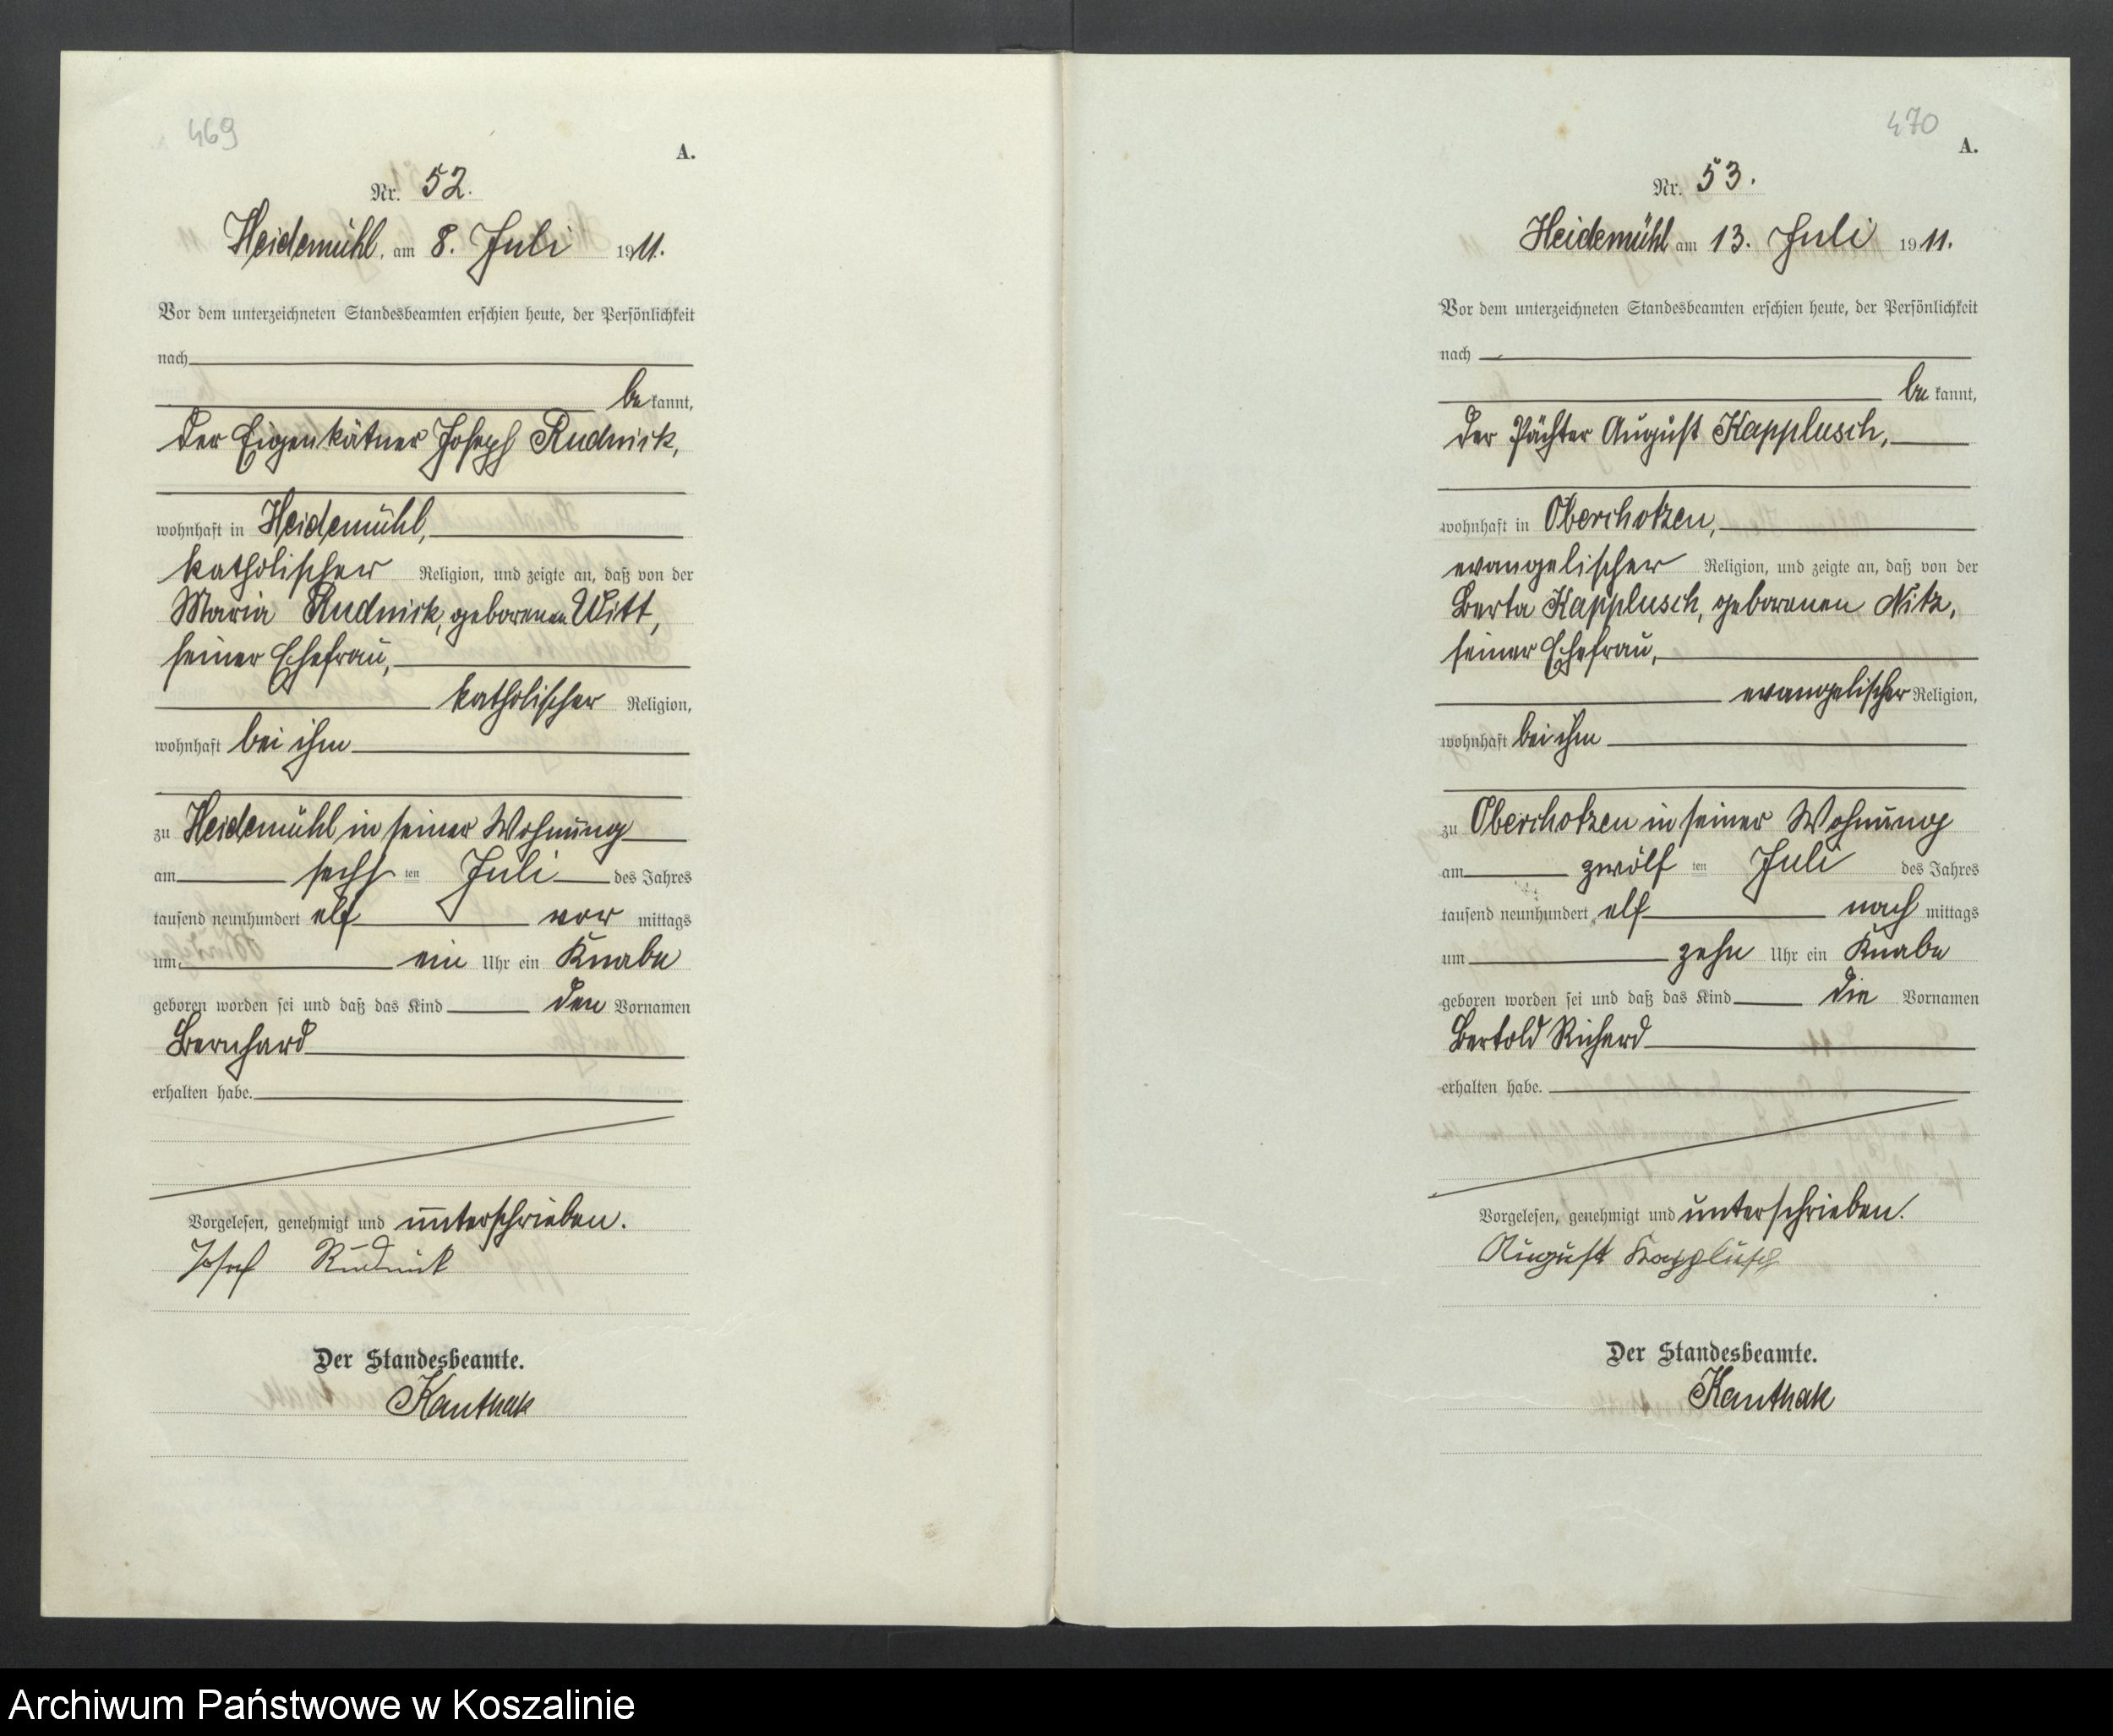 469
A.
Nr. 52.
Heidemühl, am 8. Juli 1911.
Vor dem unterzeichneten Standesbeamten erschien heute, der Persönlichkeit
nach
be kannt,
der Eigenkätner Joseph Rudnick,
wohnhaft in Heidemühl,
katholischer Religion, und zeigte an, daß von der
Maria Rudnick, geborenen Witt,
seiner Ehefrau,
katholischer Religion,
wohnhaft bei ihm
zu Heidemühl in seiner Wohnung
am sechs ten Juli des Jahres
tausend neunhundert elf vor mittags
um ein Uhr ein Knabe
geboren worden sei und daß das Kind den Vornamen
Bernhard
erhalten habe.
Vorgelesen, genehmigt und unterschrieben.
Josef Rudnick
Der Standesbeamte.
Kanthak
470
A.
Nr. 53.
Heidemühl am 13. Juli 1911.
Vor dem unterzeichneten Standesbeamten erschien heute, der Persönlichkeit
nach
be kannt,
der Pächter August Kapplusch,
wohnhaft in Oberchotzen,
evangelischer Religion, und zeigte an, daß von der
Berta Kapplusch, geborenen Nitz,
seiner Ehefrau,
evangelischer Religion,
wohnhaft bei ihm
zu Oberchotzen in seiner Wohnung
am zwölf ten Juli des Jahres
tausend neunhundert elf nach mittags
um zehn Uhr ein Knabe
geboren worden sei und daß das Kind die Vornamen
Bertold Richard
erhalten habe.
Vorgelesen, genehmigt und unterschrieben.
August Kapplusch
Der Standesbeamte.
Kanthak
Archiwum Państwowe w Koszalinie